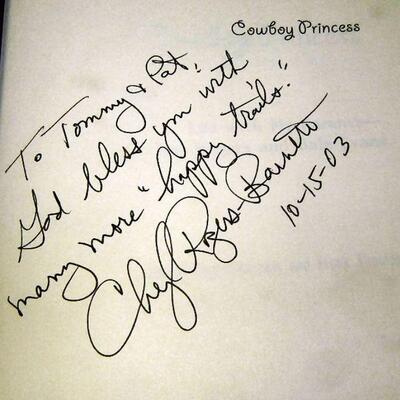 Cowboy Princess
To Tommy & Pat,
God bless you with
many more "happy trails."
Cheryl Rogers-Barnett
10-15-03